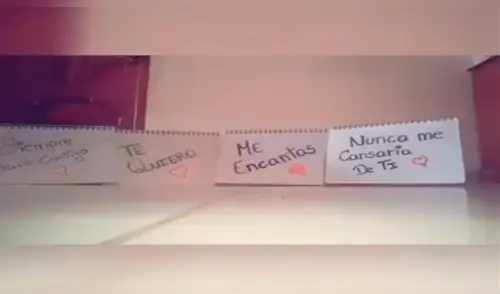 Siempre
Contigo
TE
QUIERO
ME
Encantas
Nunca me
Cansaria
De TI